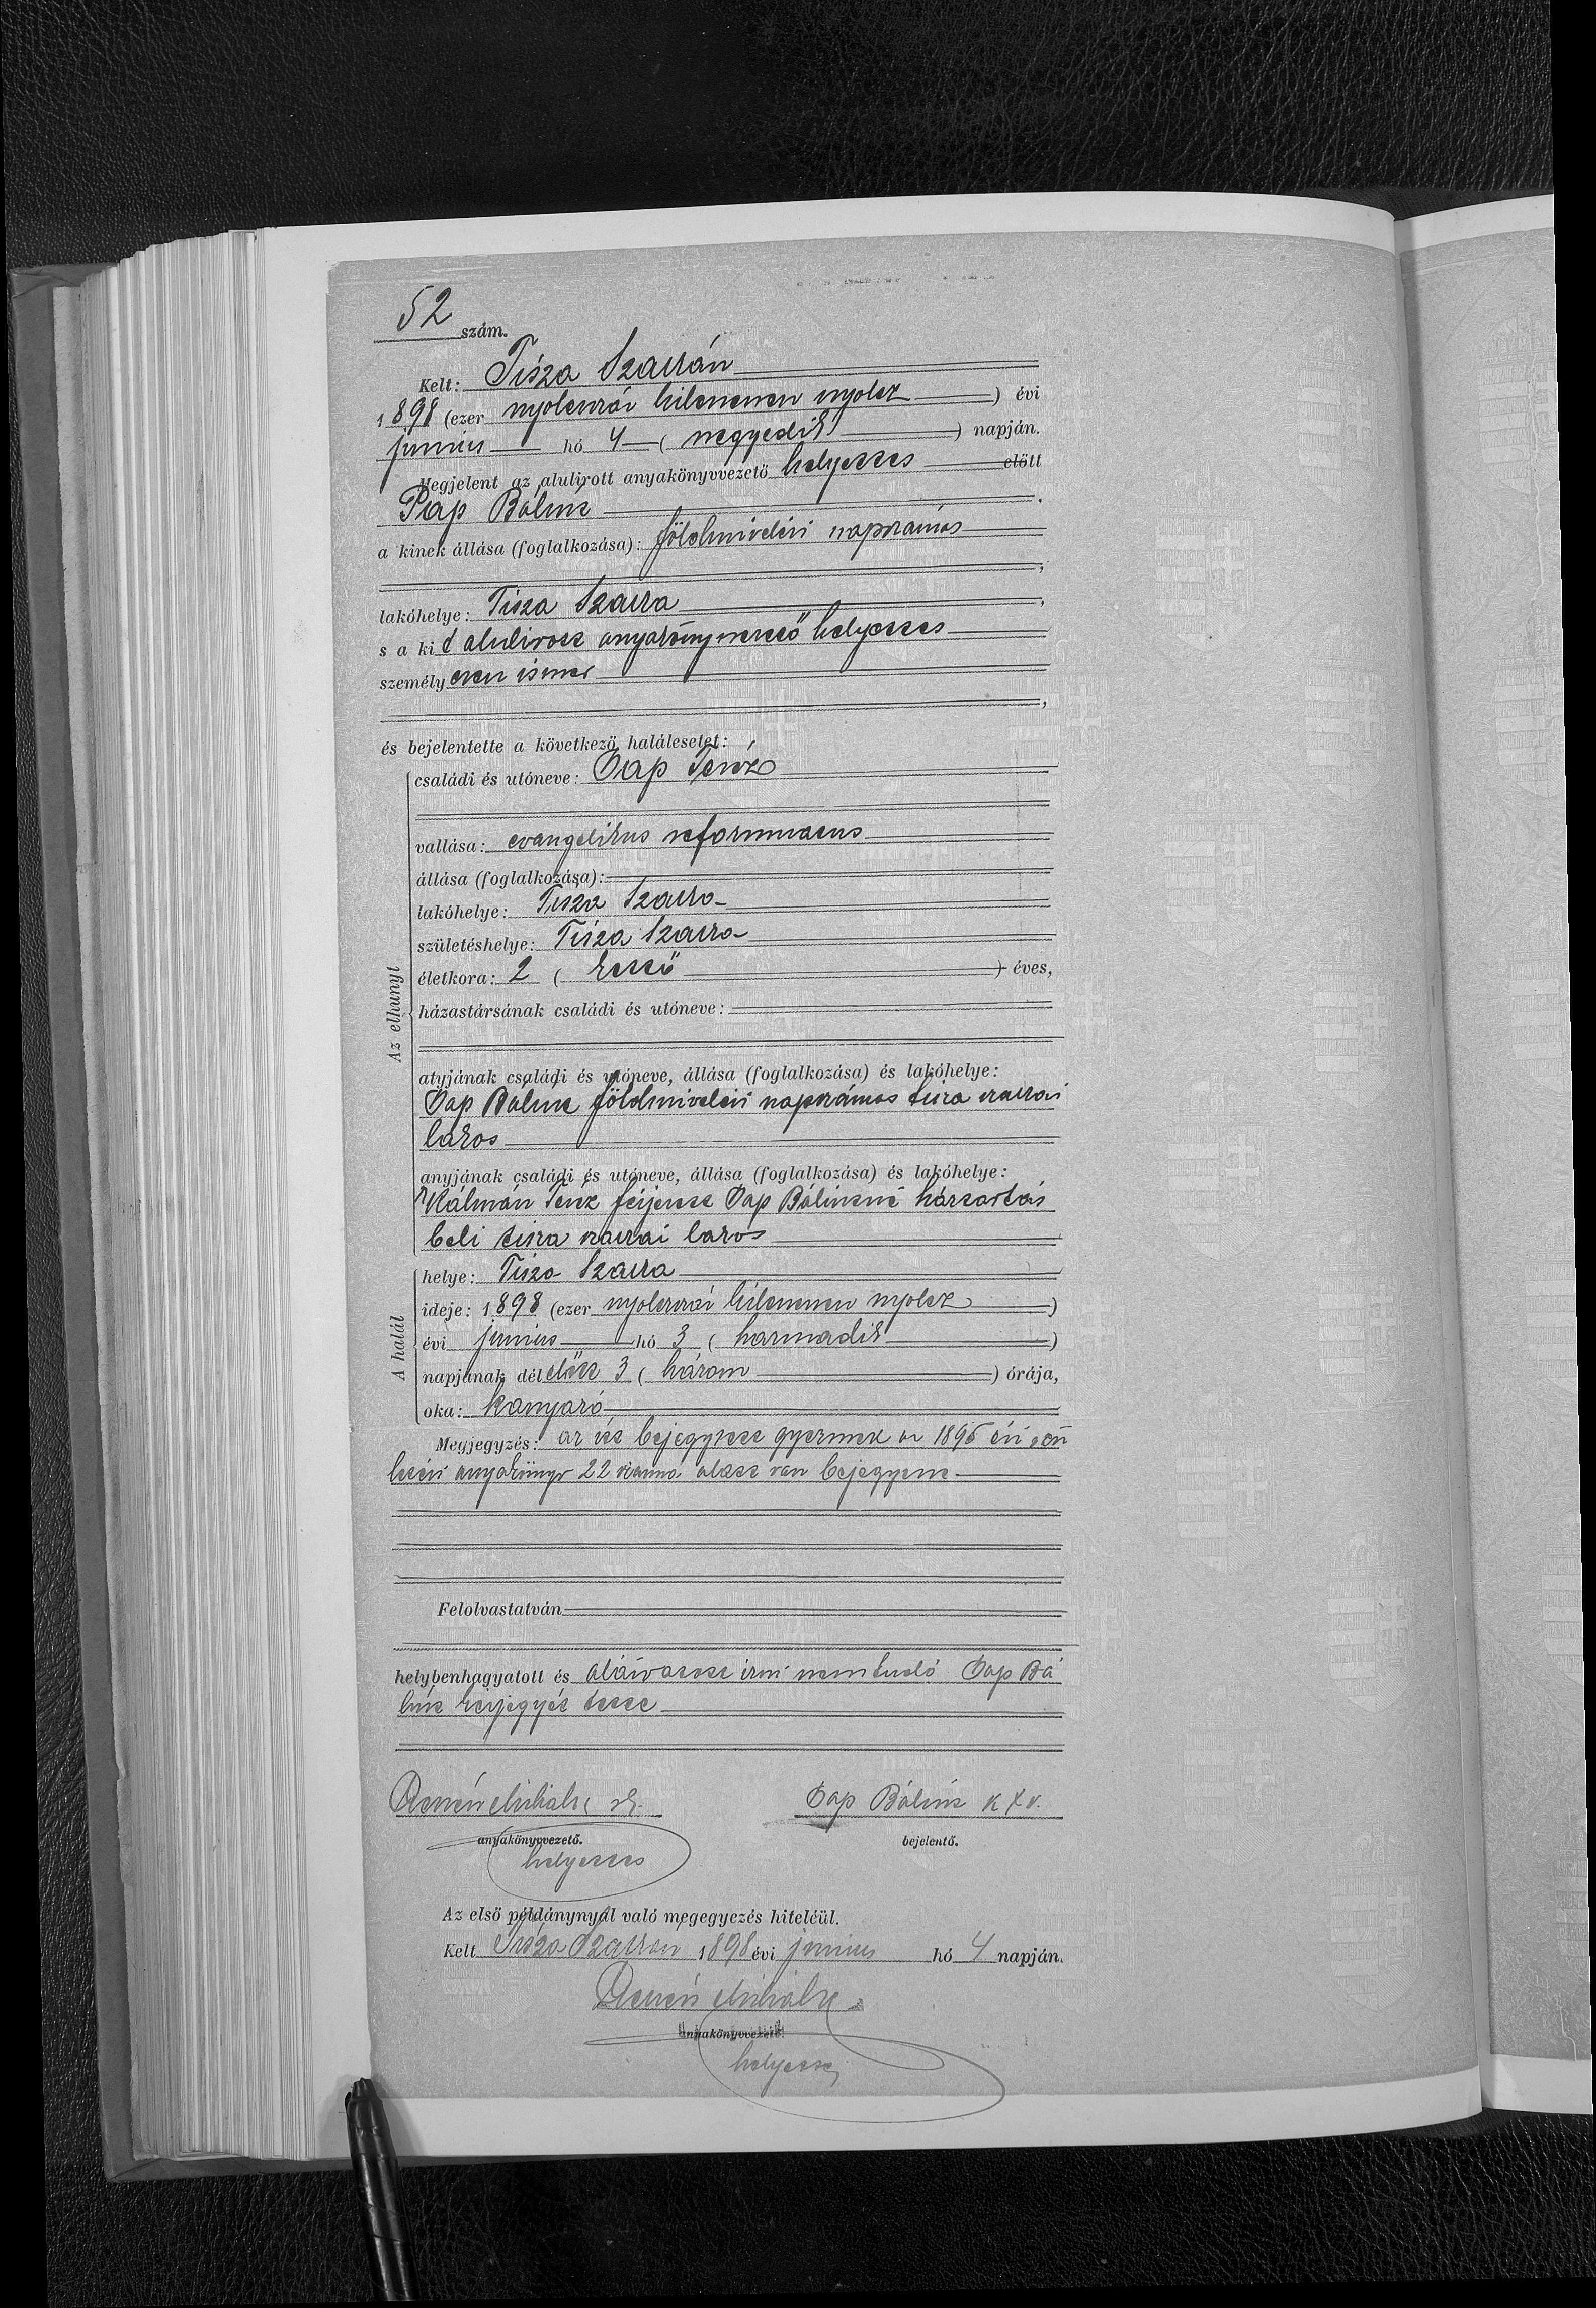 52 szám.
Kelt: Tisza Szalkán
1898 (ezer nyolczszáz kilenczven nyolcz) évi
junius hó 4 (negyedik) napján.
Megjelent az alulirott anyakönyvvezető helyettes előtt
Pap Bálint
a kinek állása (foglalkozása): földmivelési napszámos
,
lakóhelye: Tisza Szalka,
s a kit alulirott anyakönyvvezető helyettes
személyesen ismer
,
és bejelentette a következő halálesetet:
Az elhunyt
családi és utóneve: Pap Teréz
vallása: evangelikus reformatus
állása (foglalkozása):
lakóhelye: Tisza Szalka
születéshelye: Tisza Szalka
életkora: 2 (kettő) éves,
házastársának családi és utóneve:
atyjának családi és utóneve, állása (foglalkozása) és lakóhelye:
Pap Bálint földmivelési napszámos tisza szalkai
lakos
anyjának családi és utóneve, állása (foglalkozása) és lakóhelye:
Kálmán Teréz férjezett Pap Bálintné háztartás
beli tisza szalkai lakos
A halál
helye: Tisza Szalka
ideje: 1898 (ezer nyolczszáz kilenczven nyolcz)
évi junius hó 3 (harmadik)
napjának délelőtt 3 (három) órája,
oka: kanyaró
Megjegyzés: az itt bejegyzett gyermek az 1896 évi szü
letési anyakönyv 22 száma alatt van bejegyezve
Felolvastatván
helybenhagyatott és aláiratott irni nem tudó Pap Bá
lint kézjegyét tette
Mihály sk. Pap Bálint k X v.
anyakönyvvezető. bejelentő.
helyettes
Az első példánynyal való megegyezés hiteléül.
Kelt Tisza Szalkán 1898 évi junius hó 4 napján.
Mihály
anyakönyvvezető
helyettes